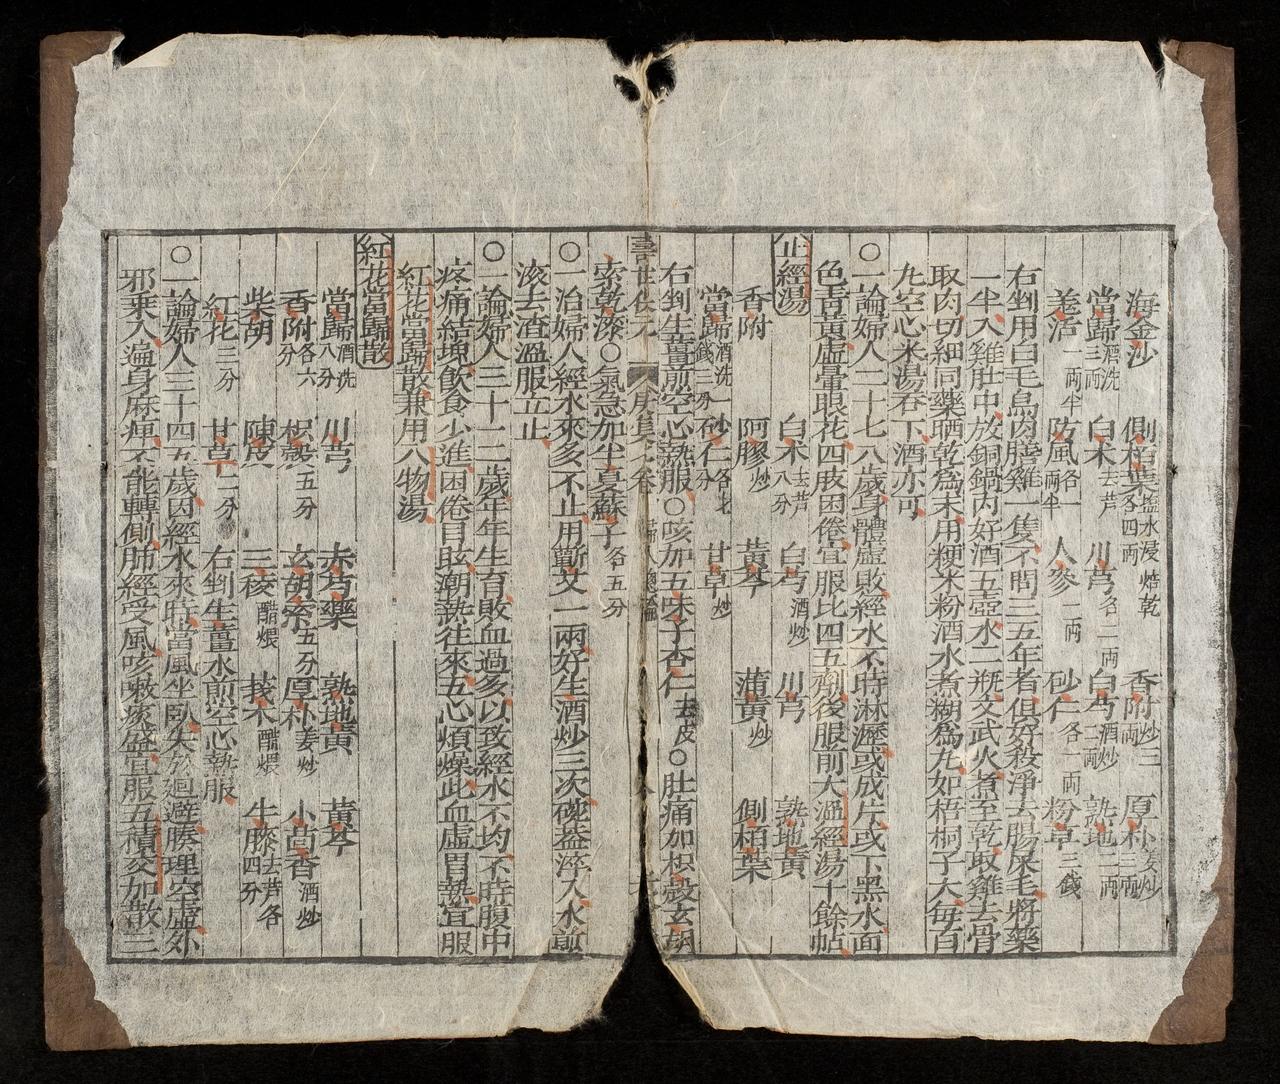 海金沙 側柏葉鹽水浸焙乾各四兩 香附炒三兩 厚朴姜炒三兩
當歸酒洗三兩 白朮去芦 川芎各二兩 白芍酒炒二兩 熟地二兩
羌活一兩半 防風各一兩半 人參一兩 砂仁各一兩 粉草三錢
右剉用白毛烏肉騸雞一隻不問三五年者俱好殺淨去腸屎毛將藥
一半入雞肚中放銅鍋內好酒五壺水二瓶文武火煮至乾取雞去骨
取肉切細同藥晒乾為末用粳米粉酒水煮糊為丸如梧桐子大每百
丸空心米湯吞下酒亦可
○一論婦人二十七八歲身體虛敗經水不時淋瀝或成片或下黑水面
色青黃虛暈眼花四肢困倦宜服比四五劑後服前大溫經湯十餘帖
止經湯
香附 白朮去芦八分 白芍酒炒 川芎 熟地黃
阿膠炒 黃芩 蒲黃炒 側柏葉
當歸酒洗一錢二分 砂仁各七分 甘草炒
右剉生薑煎空心熱服○咳加五味子杏仁去皮○肚痛加枳殼玄胡
壽世保元 庚集七卷
索乾漆○氣急加半夏蘇子各五分
○一治婦人經水來多不止用蘄艾一兩好生酒炒三次碗蓋淬入水煎
滾去渣溫服立止
○一論婦人三十二歲年年生育敗血過多以致經水不均不時腹中
疼痛結塊飲食少進困倦目眩潮熱往來五心煩燥此血虛胃熱宜服
紅花當歸散兼用八物湯
紅花當歸散
當歸酒洗八分 川芎 赤芍藥 熟地黃 黃芩
香附各六分 枳殼五分 玄胡索五分 厚朴姜炒 小茴香酒炒
柴胡 陳皮 三稜醋煨 莪朮醋煨 牛膝去芦各四分
紅花三分 甘草二分 右剉生薑水煎空心熱服
○一論婦人三十四五歲因經水來時當風坐臥失於迴避腠理空虛外
邪乘入遍身麻痺不能轉側肺經受風咳嗽痰盛宜服五積交加散三